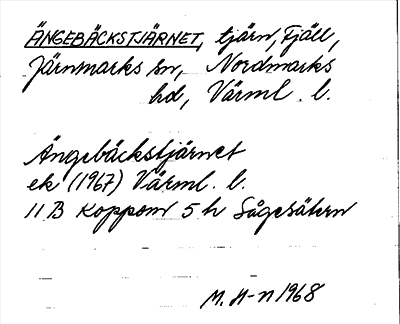 ÄNGEBÄCKSTJÄRNET, tjärn, Fjäll,
Järnmarks sn, Nordmarks
hd, Värml. l.
Ängebäckstjärnet
ek (1967) Värml. l.
11 B Koppom 5 h Sågesätern
M. H-n 1968